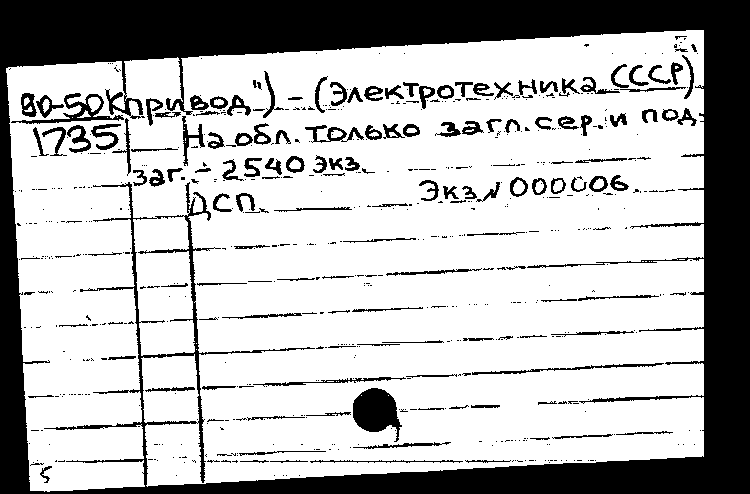 90-50К привод") – (Электротехника СССР)
1735 На обл. только загл. сер. и под-
заг. – 2540 экз.
ДСП. Экз. № 000006.
5